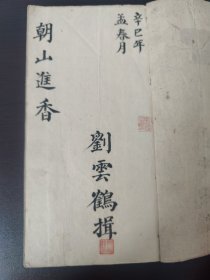 辛巳年
孟春月
朝山進香
劉雲鶴揖